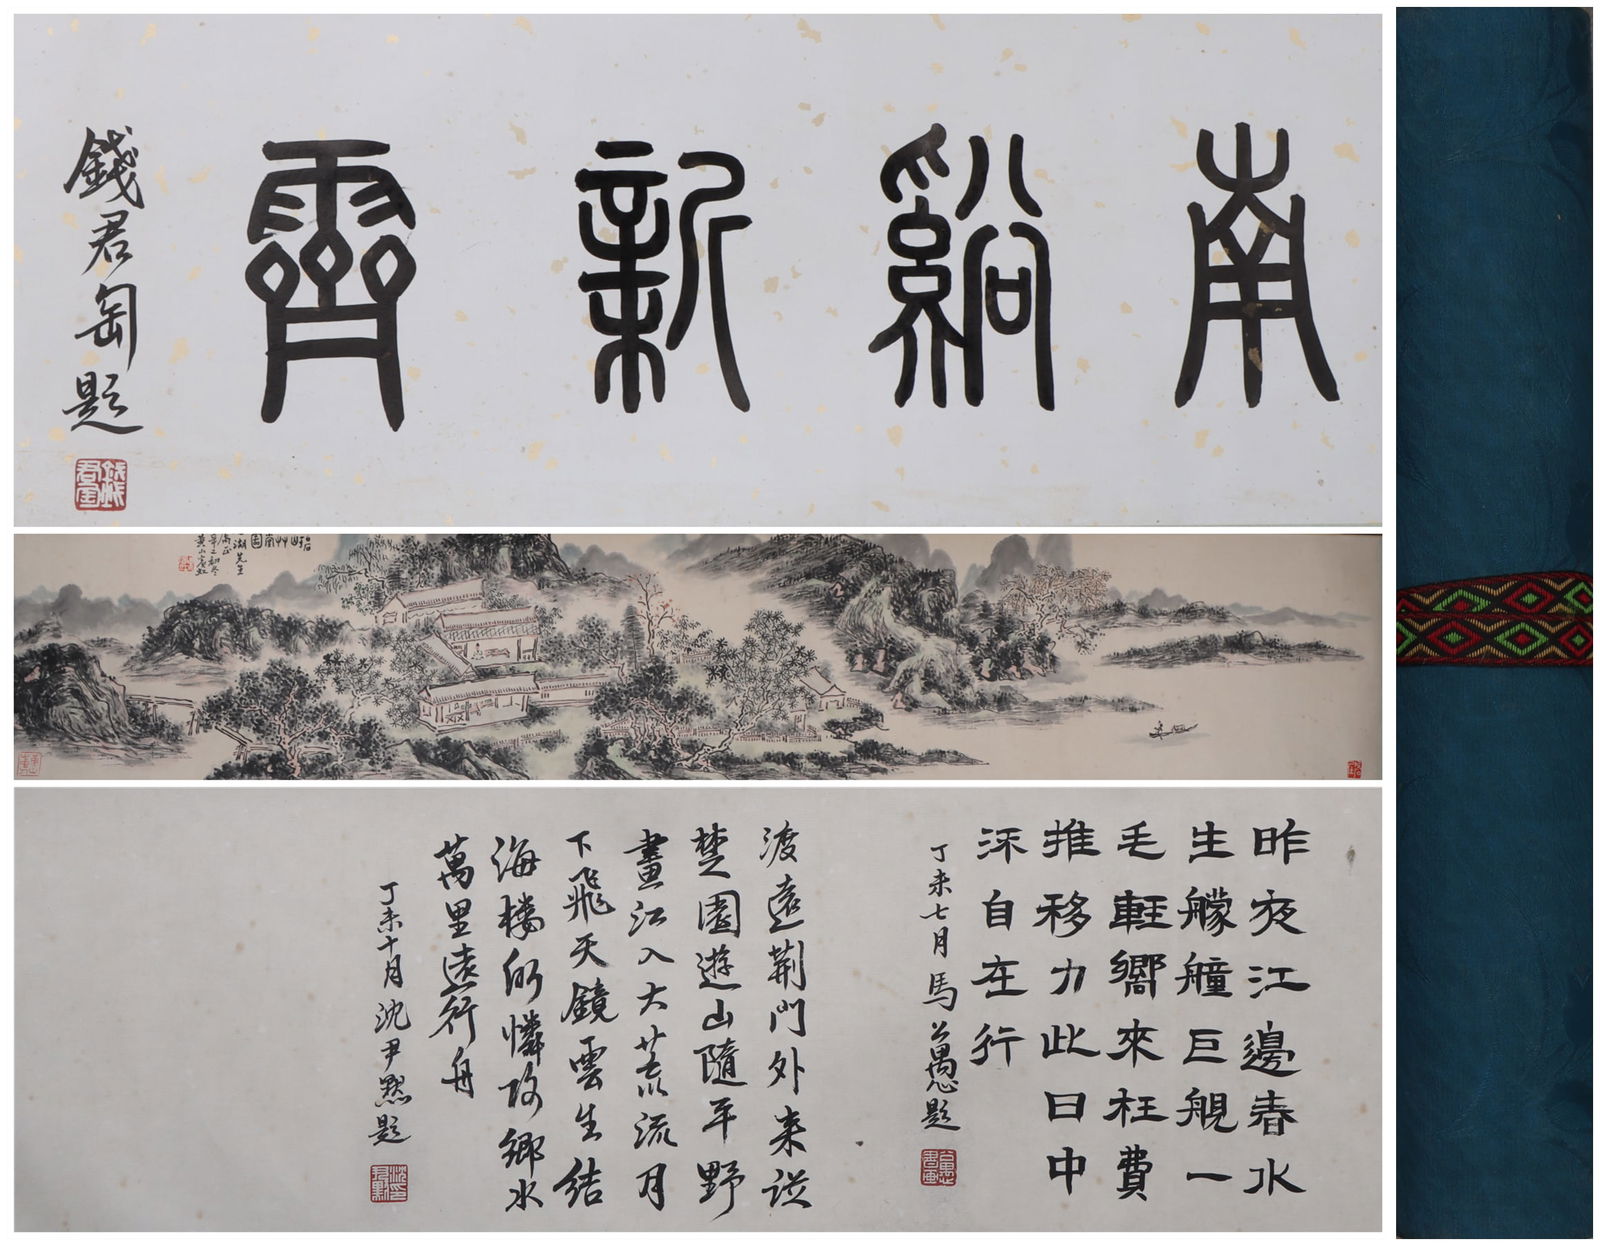 南谿新霽
錢君匋題
湖先生
昨夜江邊春水
生艨艟巨艦一
毛輕嚮來枉費
推移力此日中
流自在行
丁未七月馬公愚題
渡遠荆門外来從
楚國遊山隨平野
盡江入大荒流月
下飛天鏡雲生結
海樓仍憐故鄉水
萬里送行舟
丁未十月沈尹默題